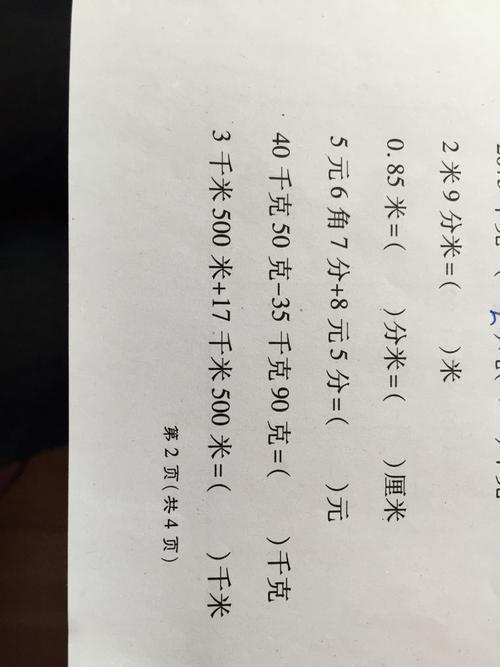 2米9分米=(  )米
0.85米=(  )分米=(  )厘米
5元6角7分+8元5分=(  )元
40千克50克-35千克90克=(  )千克
3千米500米+17千米500米=(  )千米
第2页(共4页)